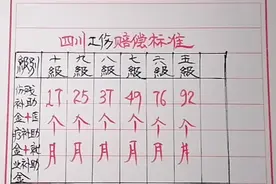 四川工伤赔偿标准
级别 十級 九級 八級 七級 六級 五級
伤残补助金+医疗补助金+就业补助金 17个月 25个月 37个月 49个月 76个月 92个月